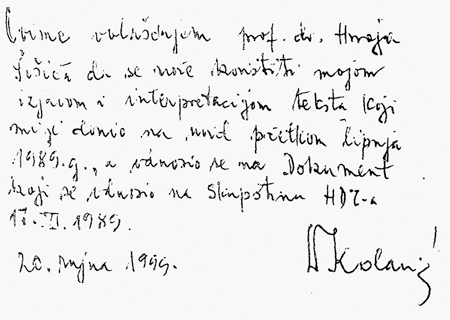 Ovime ovlašćujem prof. dr. Hrvoja
Šošića da se može koristiti mojom
izjavom i interpretacijom teksta koji
mi je donio na uvid početkom lipnja
1989. g., a odnosio se na Dokument
koji se odnosio na Skupštinu HDZ-a
17. VI. 1989.
20. rujna 1999.